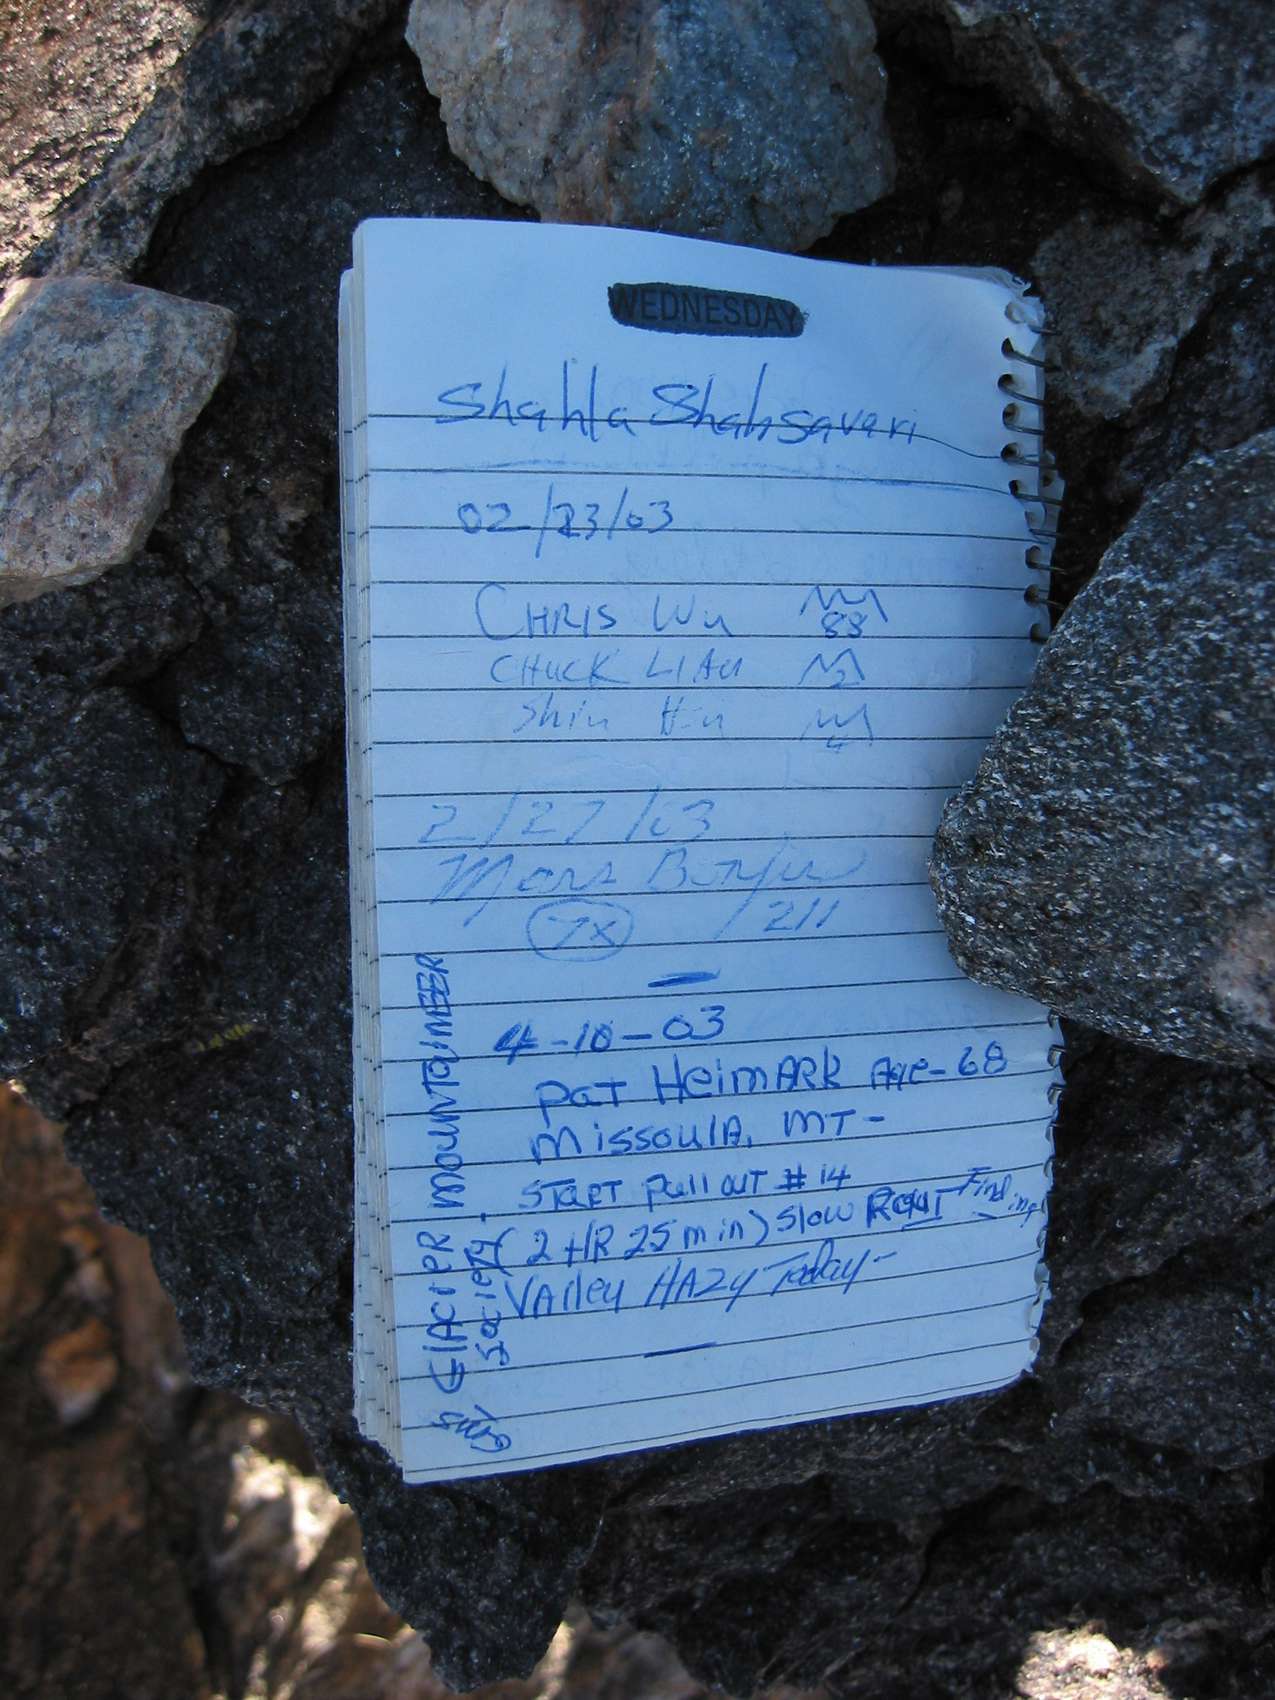 WEDNESDAY
Shahla Shahsavari
02/23/03
CHRIS Wu 88
CHUCK LIAU 2
Shin 4
2/27/03
7x /211
4-10-03
PaT HeimARK Age-68
MissoulA, MT-
START pull out # 14
(2 HR 25 min) Slow ROUT Finding
VAlley HAZy Today-
GlAciER MOUNTAINEER
Society.